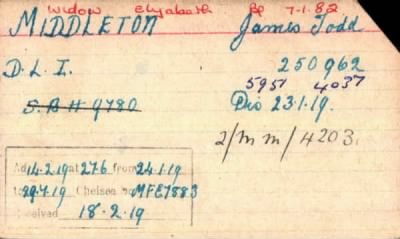 Widow Elizabeth Bp 7-1-82
MIDDLETON James Todd
D.L.I. 250962
5951 4037
S.B.H 9780 Dis 23.1.19.
2/MM/4203.
Ad 14.2.19 at 27.6 from 24.1.19
to 29.7.19 Chelsea no MFE7883
ceived 18.2.19